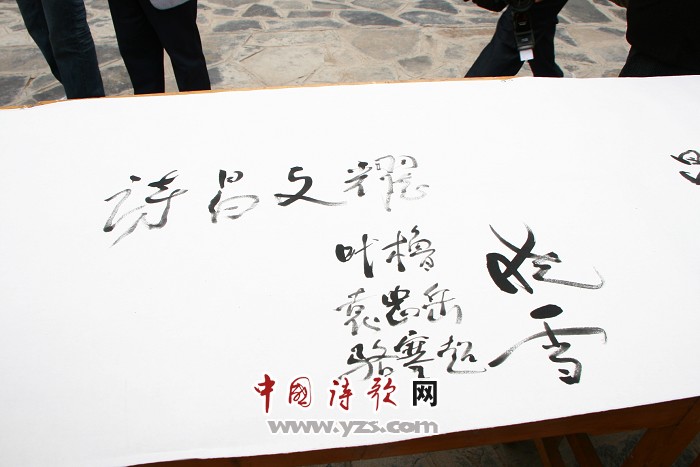 詩昌文耀
叶橹
袁忠岳
骆寒超
晓雪
中國诗歌网
www.yzs.com